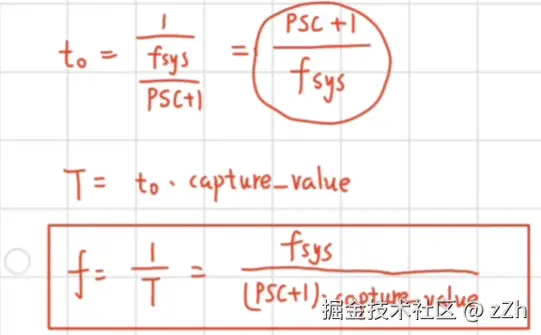 t₀ = 1/(fsys/(PSC+1)) = (PSC+1)/fsys
T = t₀ · capture_value
f = 1/T = fsys/((PSC+1)·capture_value)
掘金技术社区 @ zZh